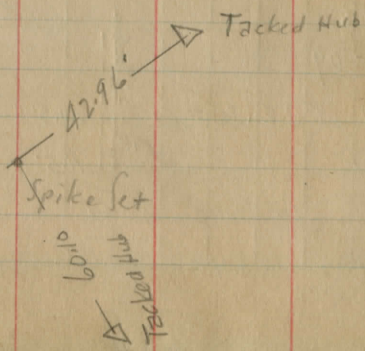 Tacked Hub
42.96'
Spike Set
Tacked Hub